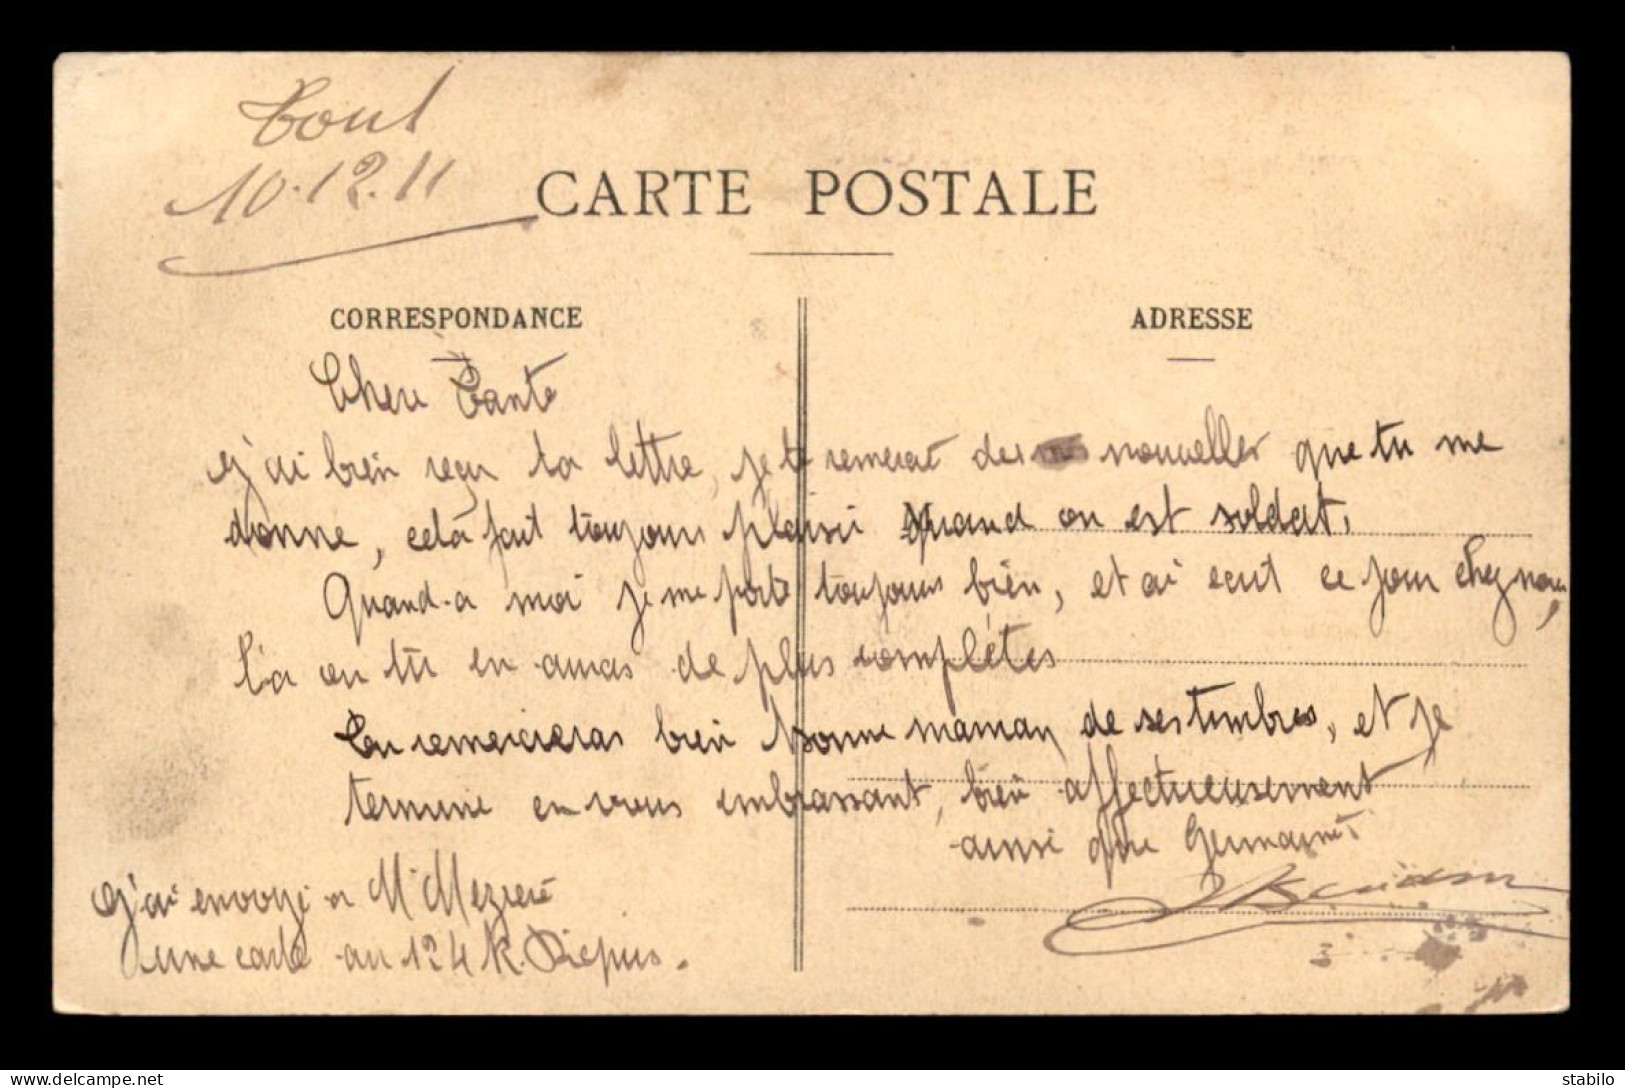 Toul
10.12.11
CARTE POSTALE
CORRESPONDANCE
ADRESSE
Chere Tante
j'ai bien reçu ta lettre, je te remerci des nouvelles que tu me
donne, celà fait toujours plaisir quand on est soldat.
Quand-a moi je me porte toujours bien, et ai ecrit ce jour chez nous,
la on tu en auras de plus complètes
Tu remercieras bien bonne maman de ses timbres, et je
termine en vous embrassant, bien affectueusement
ainsi que Germaine
J'ai envoyé a Mr Mezieré
une carte au 124 R.
stabilo